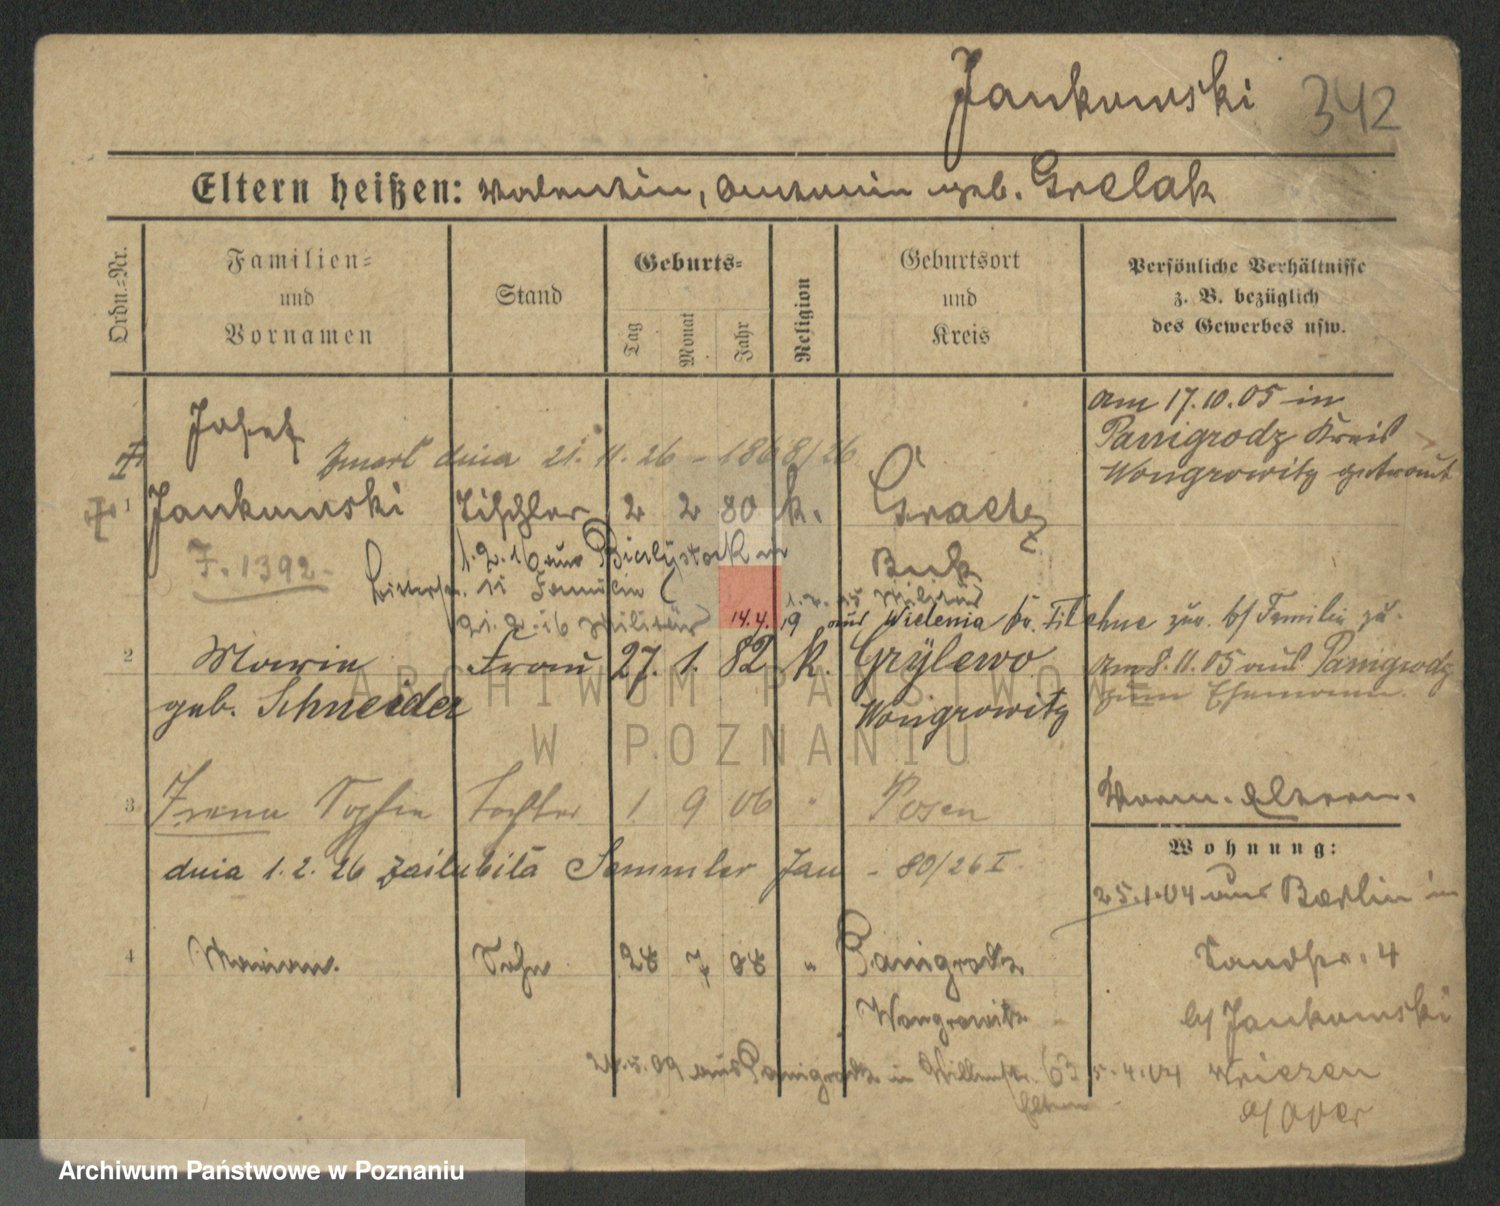 Jankowski 342
Eltern heißen: Valentin, Antonin geb. Grelak
Ordn.=Nr.
Familien=
und
Vornamen
Stand
Geburts=
Tag
Monat
Jahr
Religion
Geburtsort
und
Kreis
Persönliche Verhältnisse
z. B. bezüglich
des Gewerbes usw.
am 17.10.05 in
Panigrodz Kreis
Wongrowitz getraut
Josef
zmarł dnia 21.11.26 - 1868/26
1 Jankowski Tischler 2 2 80 k. Graetz
Buk
F. 1392
1.2.16 aus Bialystok
21.2.16 Militär
14.4.19 aus Wielenia Kr. Filehne zur. b/ Familie zu.
2 Maria Frau 27. 1. 82 k. Grylewo
geb. Schneider Wongrowitz
am 8.11.05 aus Panigrodz
zum Ehemann.
3 Irena Sophie Tochter 1 9 06 " Posen
Vorm. Eltern.
dnia 1.2.26 zaślubiła Sammler Jan - 80/26 I.
Wohnung:
25.1.04 aus Berlin in
4 Marian. Sohn 28 7 08 " Panigrodz
Wongrowitz
Sandstr. 4
b/ Jankowski
24.5.09 aus Panigrodz in Willenstr. 63
Eltern
5.4.04 Wriezen
a/ Oder
ARCHIWUM PAŃSTWOWE
W POZNANIU
Archiwum Państwowe w Poznaniu